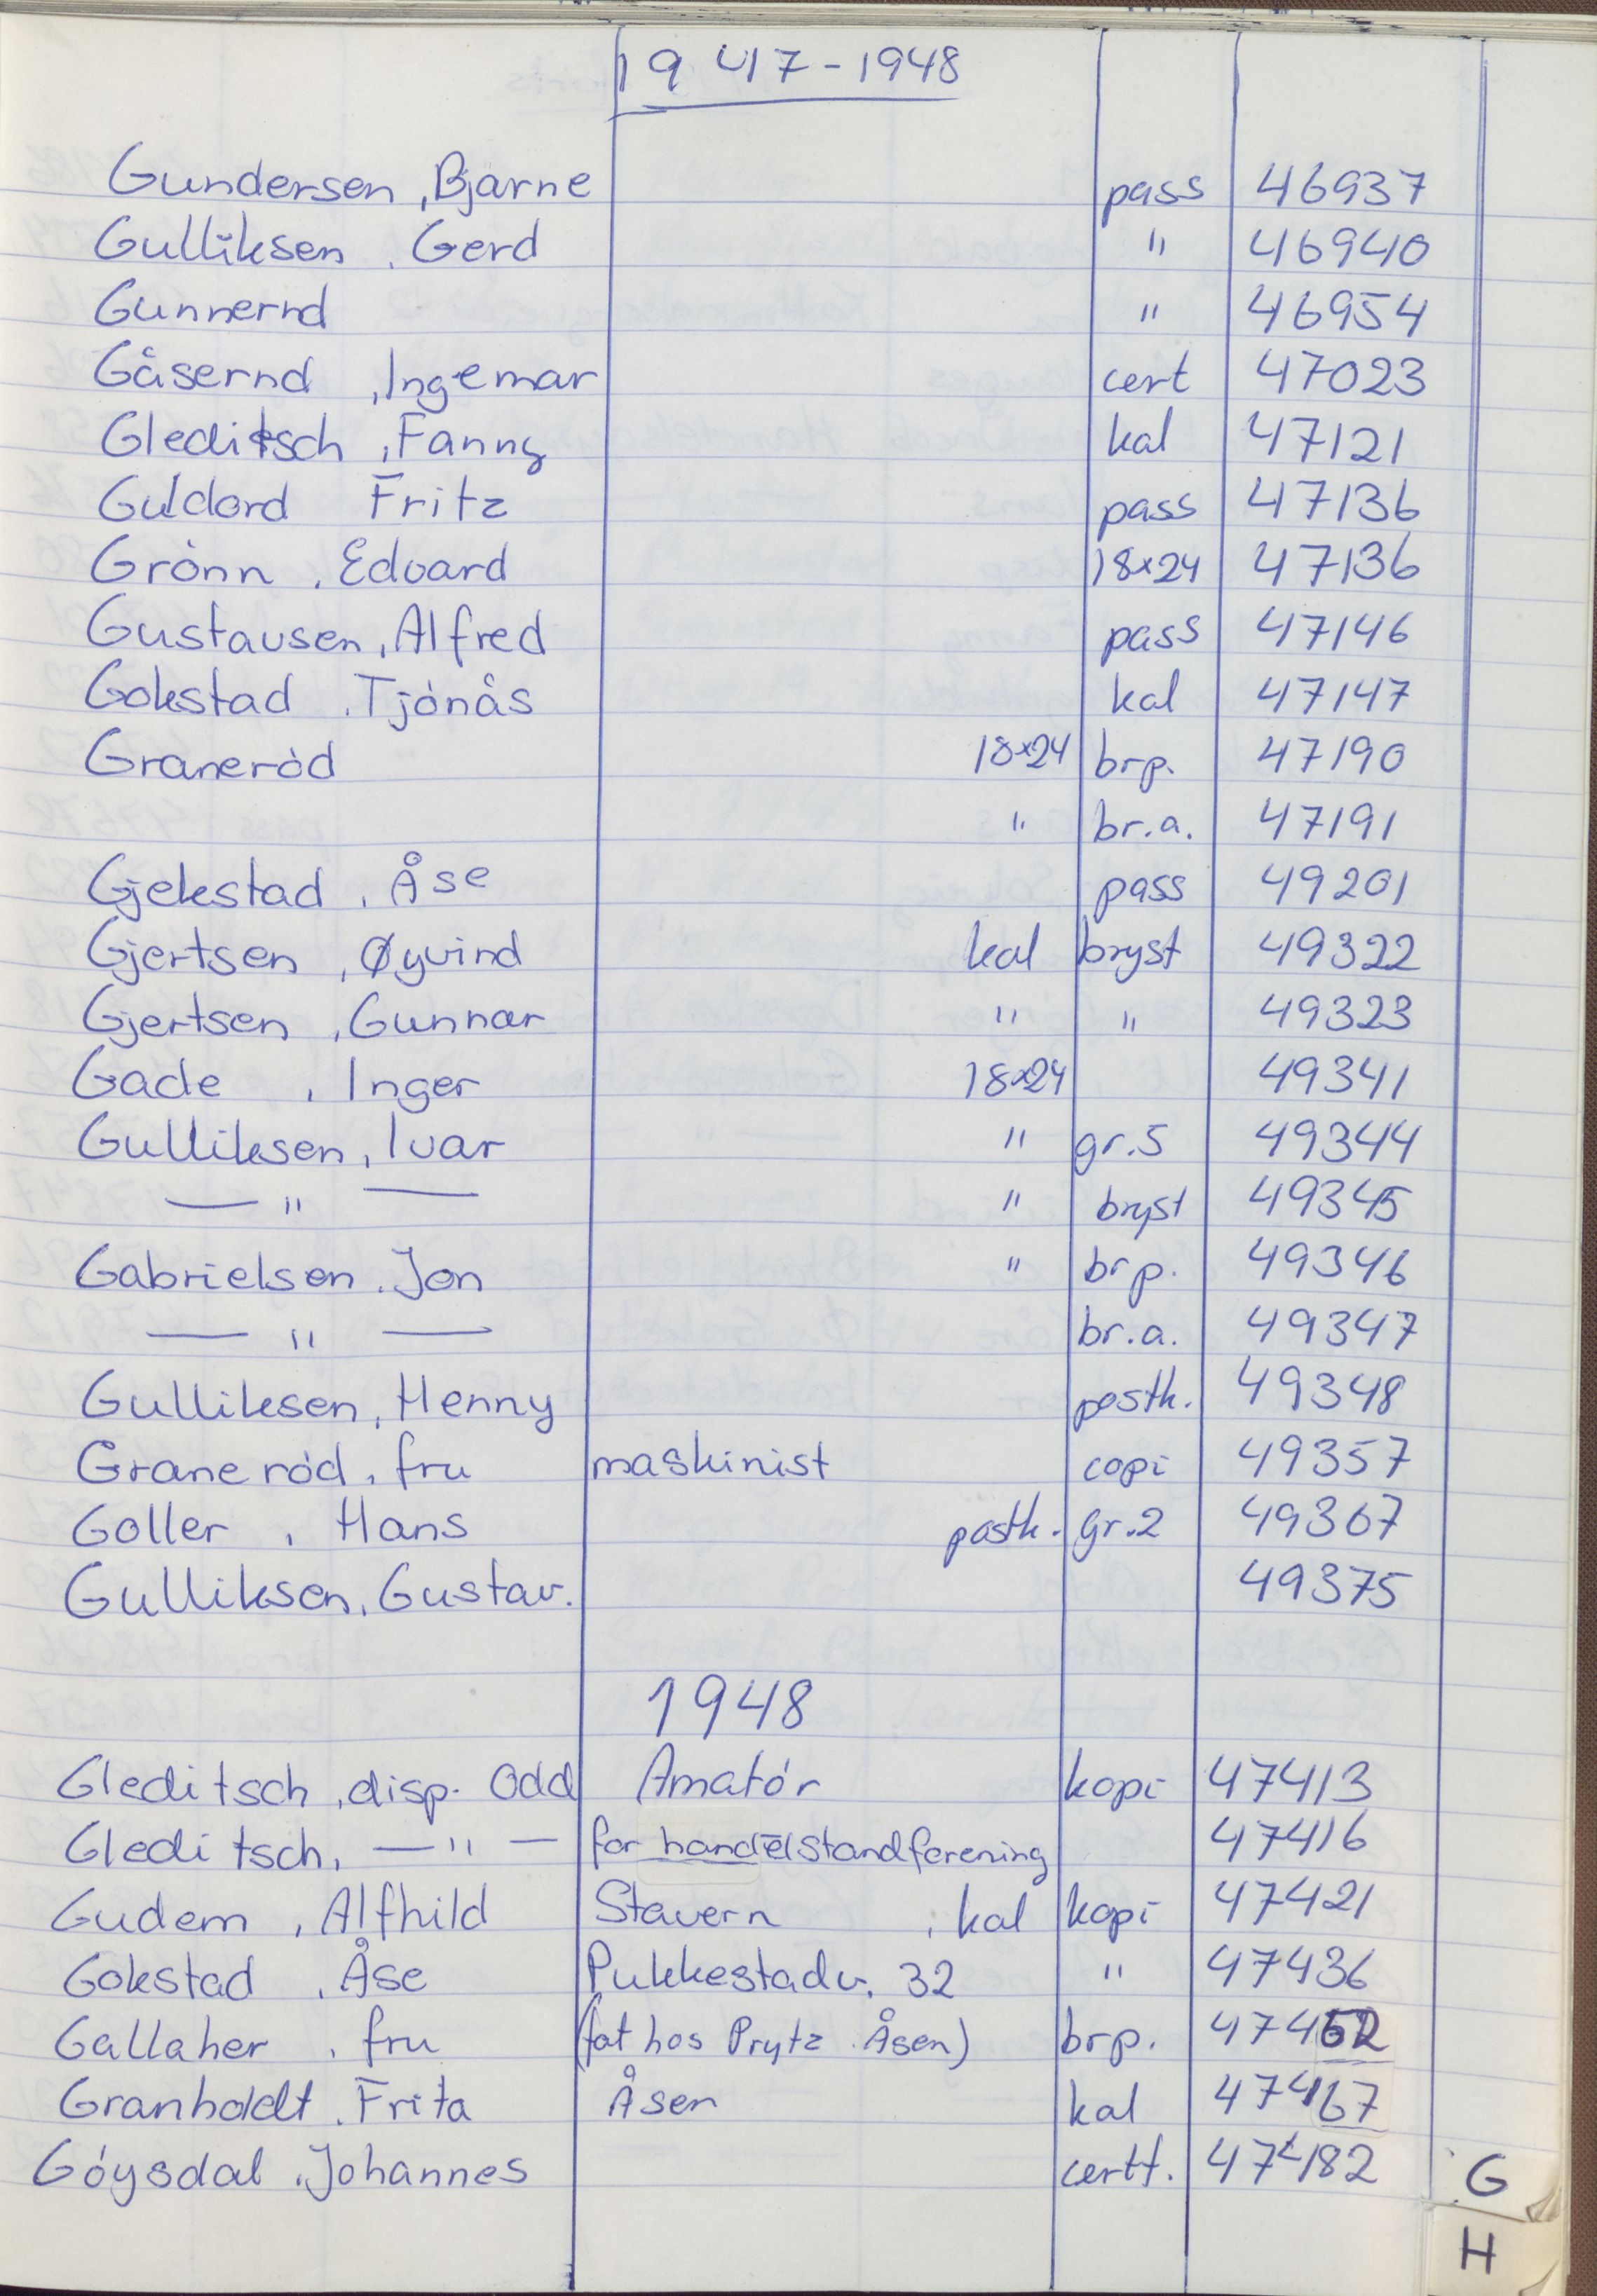 1947-1948
Gundersen, Bjarne pass 46937
Gulliksen, Gerd " 46940
Gunnernd " 46954
Gåsernd, Ingemar cert 47023
Gleditsch, Fanny kal 47121
Guldord Fritz pass 47136
Grónn, Edvard 18x24 47136
Gustavsen, Alfred pass 47146
Gokstad, Tjónås kal 47147
Graneród 18x24 brp. 47190
" br.a. 47191
Gjekstad, Åse pass 49201
Gjertsen, Øyvind kal bryst 49322
Gjertsen, Gunnar " " 49323
Gade, Inger 18x24 49341
Gulliksen, Ivar " gr.5 49344
— " — " bryst 49345
Gabrielsen. Jon " brp. 49346
— " — br.a. 49347
Gulliksen, Henny postk. 49348
Graneród, fru maskinist copi 49357
Goller, Hans postk. gr.2 49367
Gulliksen, Gustav. 49375
1948
Gleditsch, disp. Odd Amatór kopi 47413
Gleditsch, — " — for handelstandforening 47416
Gudem, Alfhild Stavern, kal kopi 47421
Gokstad, Åse Pukkestadv. 32 " 47436
Gallaher, fru (fot hos Prytz Åsen) brp. 47452
Granholdt. Frita Åsen kal 47467
Góysdal, Johannes certt. 47482
G
H